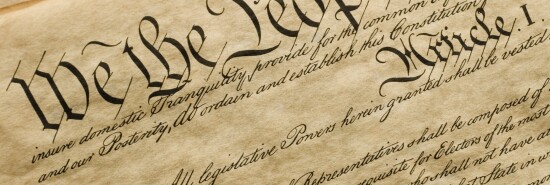 We the People
insure domestic Tranquility, provide for the common
and our Posterity, do ordain and establish this Constitution
Article. I.
All legislative Powers herein granted shall be vested
Representatives shall be composed of
requisite for Electors of the most
who shall not have
State in